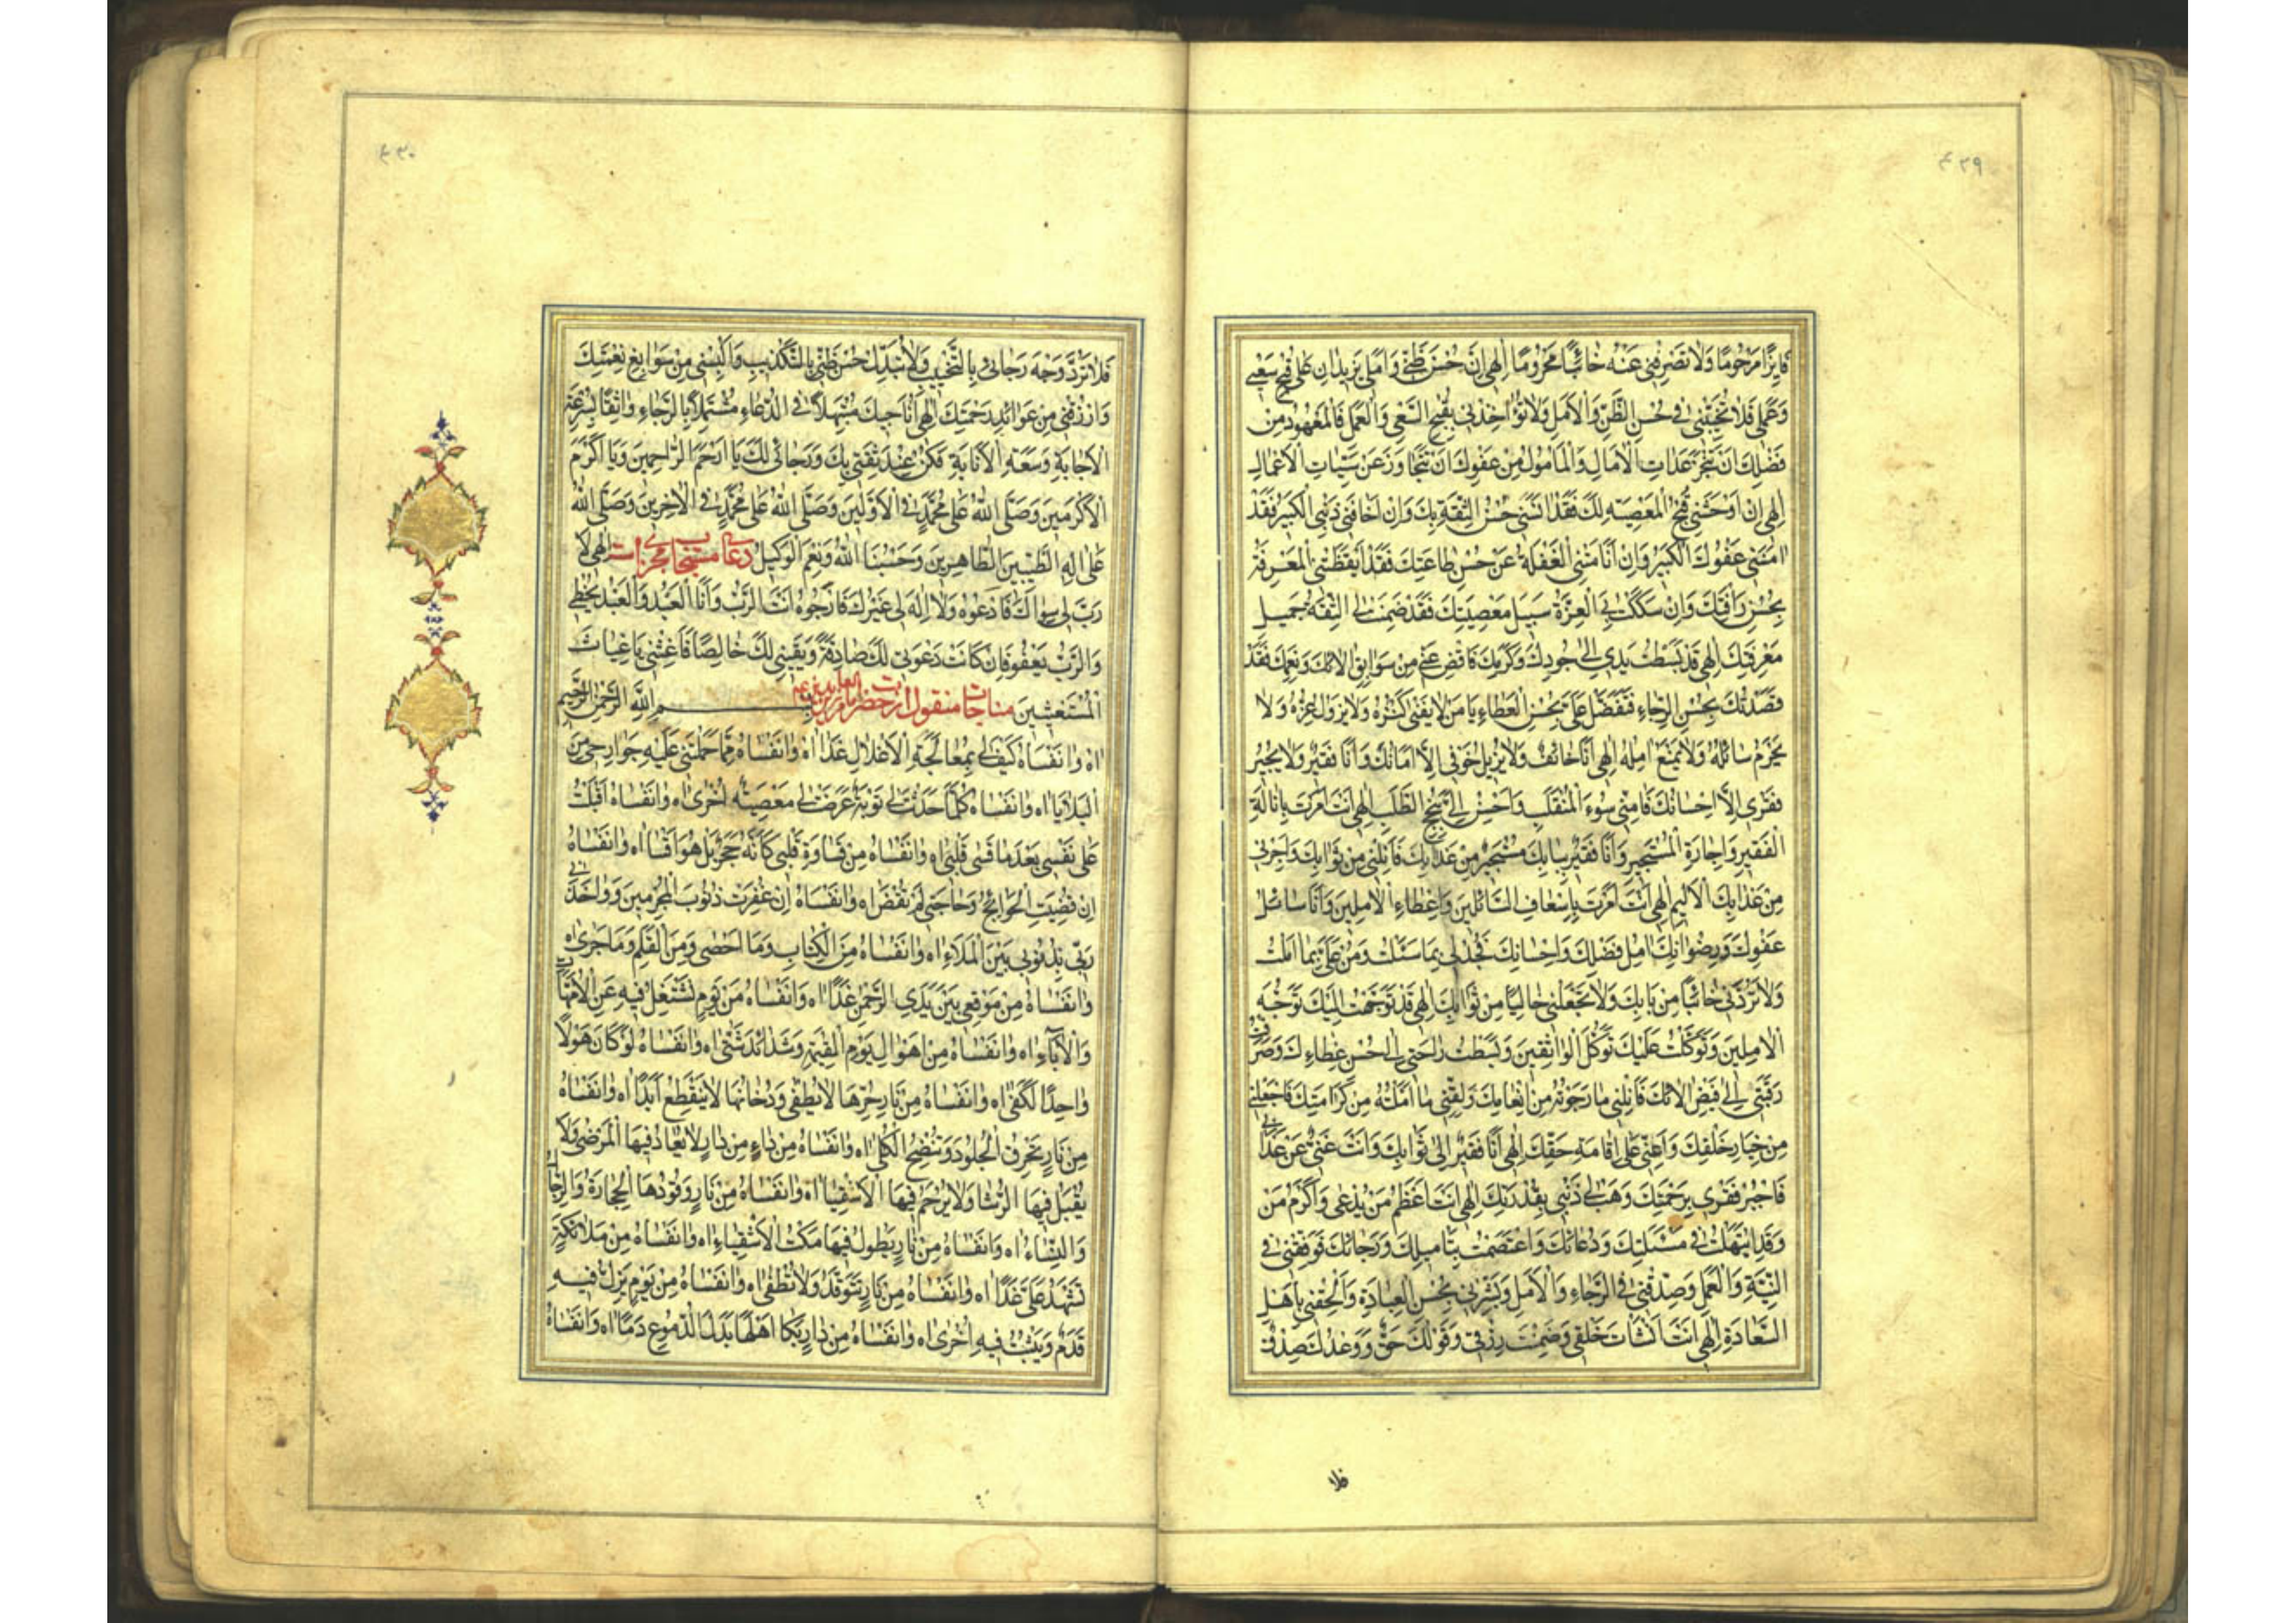 ٤٢٩
فَايِزًا مَرْحُومًا وَلَا تَصْرِفْنِي عَنْهُ خَائِبًا مَحْرُومًا اِلٰهِي اِنَّ حُسْنَ ظَنّي وَاَمَلي يَزيدَانِ عَلى قُبْحِ سَعْيي
وَعَمَلي فَلا تُخَيِّبْني في حُسْنِ الظَّنِّ وَالْاَمَلِ وَلا تُؤاخِذْني بِقُبْحِ السَّعْيِ وَالْعَمَلِ فَالْمَعْهُودُ مِنْ
فَضْلِكَ اَنْ تُنْجِزَ عِدَاتِ الْاٰمَالِ وَالْمَاْمُولُ مِنْ عَفْوِكَ اَنْ تَتَجَاوَزَ عَنْ سَيِّئاتِ الْاَعْمَالِ
اِلٰهِي اِنْ اَوْحَشَني قُبْحُ الْمَعْصِيَةِ لَكَ فَقَدْ اٰنَسَني حُسْنُ الثِّقَةِ بِكَ وَاِنْ اَخَافَني ذَنْبِيَ الْكَبيرُ فَقَدْ
اٰمَنَني عَفْوُكَ الْكَبيرُ وَاِنْ اَنَامَتْنِي الْغَفْلَةُ عَنْ حُسْنِ طَاعَتِكَ فَقَدْ اَيْقَظَتْنِي الْمَعْرِفَةُ
بِحُسْنِ رَاْفَتِكَ وَاِنْ سَلَكَتْ بِيَ الْعِزَّةُ سَبيلَ مَعْصِيَتِكَ فَقَدْ ضَمِنَتْ لي الثِّقَةُ جَميلَ
مَعْرِفَتِكَ اِلٰهي قَدْ بَسَطْتُ يَدي اِلى جُودِكَ وَكَرَمِكَ فَاَفِضْ عَلَيَّ مِنْ سَوَابِقِ اٰلائِكَ وَنِعَمِكَ فَقَدْ
قَصَدْتُكَ بِحُسْنِ الرَّجَاءِ فَتَفَضَّلْ عَلَيَّ بِحُسْنِ الْعَطَاءِ يَا مَنْ لا يَفْنى كَنْزُهُ وَلا يَزُولُ عِزُّهُ وَلا
يَحْرِمُ سَائِلَهُ وَلا يَمْنَعُ اٰمِلَهُ اِلٰهي اَنَا خَائِفٌ وَلا يُزيلُ خَوْفي اِلَّا اَمَانُكَ وَاَنَا فَقيرٌ وَلا يَجْبُرُ
فَقْري اِلَّا اِحْسَانُكَ فَاٰمِنّي سُوءَ الْمُنْقَلَبِ وَاَحْسِنْ اِلَيَّ نُجْحَ الطَّلَبِ اِلٰهي اَنْتَ اَمَرْتَ بِاِنَالَةِ
الْفَقيرِ وَاِجَارَةِ الْمُسْتَجيرِ وَاَنَا فَقيرٌ بِبَابِكَ مُسْتَجيرٌ مِنْ عَذَابِكَ فَاَنِلْني مِنْ ثَوَابِكَ وَاَجِرْني
مِنْ عَذَابِكَ الْاَليمِ اِلٰهي اَنْتَ اَمَرْتَ بِاِسْعَافِ السَّائِلينَ وَاِعْطَاءِ الْاٰمِلينَ وَاَنَا سَائِلُ
عَفْوِكَ وَرِضْوَانِكَ اٰمِلُ فَضْلِكَ وَاِحْسَانِكَ فَجُدْ لي بِمَا سَئَلْتُ وَمُنَّ عَلَيَّ بِمَا اَمَلْتُ
وَلا تَرُدَّني خَائِبًا مِنْ بَابِكَ وَلا تَجْعَلْني خَالِيًا مِنْ ثَوَابِكَ اِلٰهي قَدْ تَوَجَّهْتُ اِلَيْكَ تَوَجُّهَ
الْاٰمِلينَ وَتَوَكَّلْتُ عَلَيْكَ تَوَكُّلَ الْوَاثِقينَ وَبَسَطْتُ رَاحَتي اِلى حُسْنِ عَطَاءِكَ وَصَرَفْتُ
رَقَبَتي اِلى فَيْضِ اٰلائِكَ فَاَنِلْني مَا رَجَوْتُهُ مِنْ اِنْعَامِكَ وَلَقِّني مَا اَمَلْتُهُ مِنْ كَرَامَتِكَ فَاجْعَلْني
مِنْ خِيَارِ خَلْقِكَ وَاَعِنّي عَلى اِقَامَةِ حَقِّكَ اِلٰهي اَنَا فَقيرٌ اِلى ثَوَابِكَ وَاَنْتَ غَنِيٌّ عَنْ عَذَابي
فَاجْبُرْ فَقْري بِرَحْمَتِكَ وَهَبْ لي ذَنْبي بِقُدْرَتِكَ اِلٰهي اَنْتَ اَعْظَمُ مَنْ يُدْعى وَاَكْرَمُ مَنْ
وَقَدِ ابْتَهَلْتُ في مَسْئَلَتِكَ وَدُعَائِكَ وَاعْتَصَمْتُ بِتَاْميلِكَ وَرَجَائِكَ فَوَفِّقْني في
النِّيَّةِ وَالْعَمَلِ وَصَدِّقْني في الرَّجَاءِ وَالْاَمَلِ وَبَشِّرْني بِحُسْنِ الْعِبَادَةِ وَاَلْحِقْني بِاَهْلِ
السَّعَادَةِ اِلٰهي اَنْتَ اَنْشَاْتَ خَلْقي وَضَمِنْتَ رِزْقي وَقَوْلُكَ حَقٌّ وَوَعْدُكَ صِدْقٌ
فلا
٤٣٠
فَلا تَرُدَّ وَجْهَ رَجَائي بِالتَّخْييبِ وَلا تُبَدِّلْ حُسْنَ ظَنّي بِالتَّكْذيبِ وَاَلْبِسْني مِنْ سَوَابِغِ نِعْمَتِكَ
وَارْزُقْني مِنْ عَوَائِدِ رَحْمَتِكَ اِلٰهي اُنَاجيكَ مُبْتَهِلًا في الدُّعَاءِ مُشْتَمِلًا بِالرَّجَاءِ وَاثِقًا بِسُرْعَةِ
الْاِجَابَةِ وَسَعَةِ الْاِنَابَةِ فَكُنْ عِنْدَ ثِقَتي بِكَ وَرَجَائي لَكَ يَا اَرْحَمَ الرَّاحِمينَ وَيَا اَكْرَمَ
الْاَكْرَمينَ وَصَلَّى اللّٰهُ عَلى مُحَمَّدٍ في الْاَوَّلينَ وَصَلَّى اللّٰهُ عَلى مُحَمَّدٍ في الْاٰخِرينَ وَصَلَّى اللّٰهُ
عَلى اٰلِهِ الطَّيِّبينَ الطَّاهِرينَ وَحَسْبُنَا اللّٰهُ وَنِعْمَ الْوَكيلُ دعای مستجاب مجربست اِلٰهي لَا
رَبَّ لي سِوَاكَ فَاَدْعُوهُ وَلا اِلٰهَ لي غَيْرُكَ فَاَرْجُوهُ اَنْتَ الرَّبُّ وَاَنَا الْعَبْدُ وَالْعَبْدُ يُخْطي
وَالرَّبُّ يَعْفُو فَاِنْ كَانَتْ دَعْوَتي لَكَ صَادِقَةً وَيَقيني لَكَ خَالِصًا فَاَغِثْني يَا غِيَاثَ
الْمُسْتَغيثينَ مناجات منقول از حضرت امام زین العابدین ع بِسْمِ اللّٰهِ الرَّحْمٰنِ الرَّحيمِ
اٰه وَانَفْسَاهُ كَيْفَ لي بِمُعَالَجَةِ الْاَغْلالِ غَدًا اٰه وَانَفْسَاهُ مِمَّا حَمَلَتْني عَلَيْهِ جَوَارِحي مِنَ
الْبَلايَا اٰه وَانَفْسَاهُ كُلَّمَا حَدَثَتْ لي تَوْبَةٌ عَرَضَتْ لي مَعْصِيَةٌ اُخْرى اٰه وَانَفْسَاهُ اَقْبَلْتُ
عَلى نَفْسي بَعْدَ مَا قَسى قَلْبي اٰه وَانَفْسَاهُ مِنْ قَسَاوَةِ قَلْبي كَاَنَّهُ حَجَرٌ بَلْ هُوَ اَقْسَا اٰه وَانَفْسَاهُ
اِنْ قُضِيَتِ الْحَوَائِجُ وَحَاجَتي لَمْ تُقْضَ اٰه وَانَفْسَاهُ اِنْ غُفِرَتْ ذُنُوبُ الْمُجْرِمينَ وَوَاخَذَني
رَبّي بِذُنُوبي بَيْنَ الْمَلَاءِ اٰه وَانَفْسَاهُ مِنَ الْكِتَابِ وَمَا اَحْصى وَمِنَ الْقَلَمِ وَمَا جَرى اٰه
وَانَفْسَاهُ مِنْ مَوْقِفي بَيْنَ يَدَيِ الرَّحْمٰنِ غَدًا اٰه وَانَفْسَاهُ مِنْ يَوْمٍ نَشْتَغِلُ فيهِ عَنِ الْاُمَّهَاتِ
وَالْاٰبَاءِ اٰه وَانَفْسَاهُ مِنْ اَهْوَالِ يَوْمِ الْقِيٰمَةِ وَشَدَائِدَ شَتّى اٰه وَانَفْسَاهُ لَوْ كَانَ هَوْلًا
وَاحِدًا لَكَفى اٰه وَانَفْسَاهُ مِنْ نَارٍ حَرُّهَا لا يُطْفى وَدُخَانُهَا لا يَنْقَطِعُ اَبَدًا اٰه وَانَفْسَاهُ
مِنْ نَارٍ تُحْرِقُ الْجُلُودَ وَتُنْضِجُ الْكُلى اٰه وَانَفْسَاهُ مِنْ دَاءٍ مِنْ دَارٍ لا يُعَادُ فيهَا الْمَرْضى وَلا
يُقْبَلُ فيهَا الرُّشَا وَلا يُرْحَمُ فيهَا الْاَشْقِيَا اٰه وَانَفْسَاهُ مِنْ نَارٍ وَقُودُهَا الْحِجَارَةُ وَالرِّجَالُ
وَالنِّسَاءُ اٰه وَانَفْسَاهُ مِنْ نَارٍ يَطُولُ فيهَا مَكْثُ الْاَشْقِيَاءِ اٰه وَانَفْسَاهُ مِنْ مَلائِكَةٍ
تَشْهَدُ عَلَيَّ غَدًا اٰه وَانَفْسَاهُ مِنْ نَارٍ تَتَوَقَّدُ وَلا تُطْفى اٰه وَانَفْسَاهُ مِنْ يَوْمٍ يَزِلُّ فيهِ
قَدَمٌ وَيَثْبُتُ فيهِ اُخْرى اٰه وَانَفْسَاهُ مِنْ دَارٍ بَكَا اَهْلُهَا بَدَلَ الدُّمُوعِ دَمًا اٰه وَانَفْسَاهُ